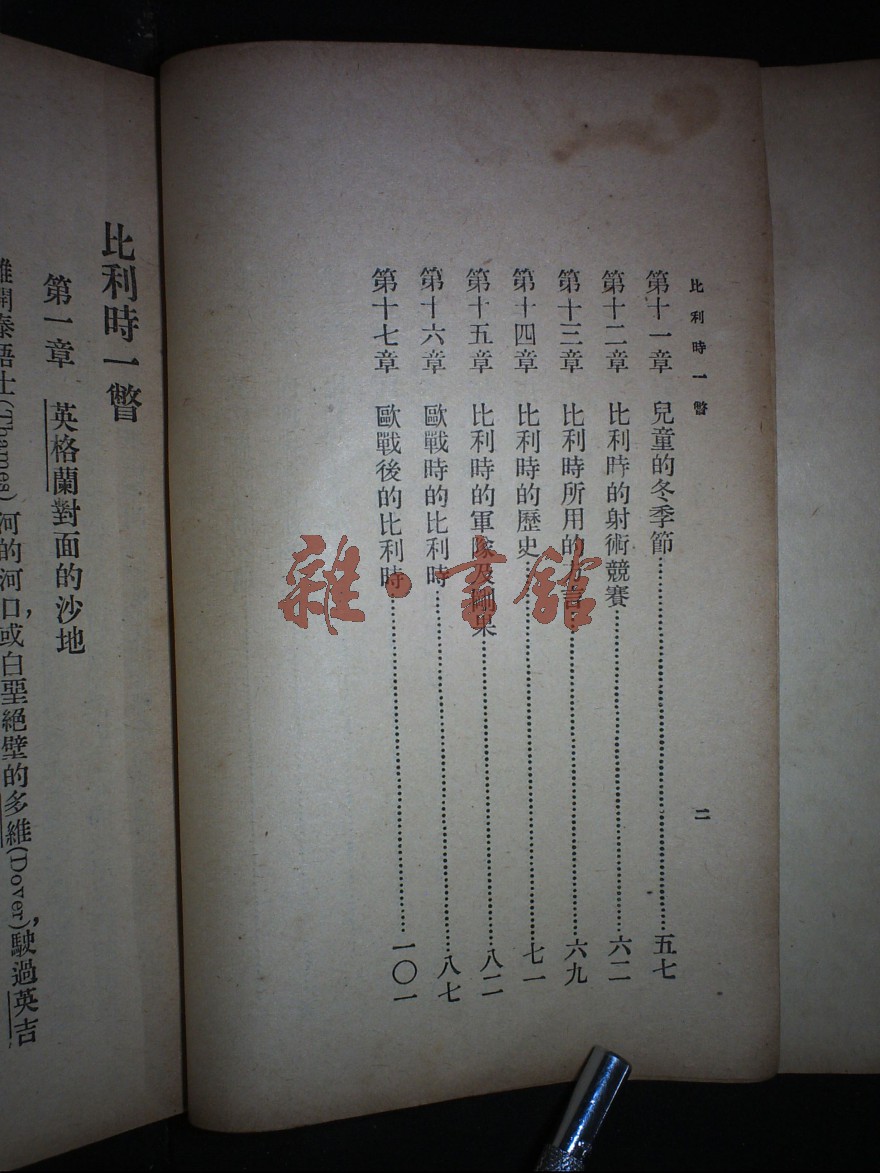 比利時一瞥
二
第十一章 兒童的冬季節…………五七
第十二章 比利時的射術競賽…………六二
第十三章 比利時所用的方言…………六九
第十四章 比利時的歷史…………七一
第十五章 比利時的軍隊及剛果…………八二
第十六章 歐戰時的比利時…………八七
第十七章 歐戰後的比利時…………一〇一
雜·書館
比利時一瞥
第一章 英格蘭對面的沙地
離開泰晤士(Thames)河的河口，或白堊絕壁的多維(Dover)，駛過英吉